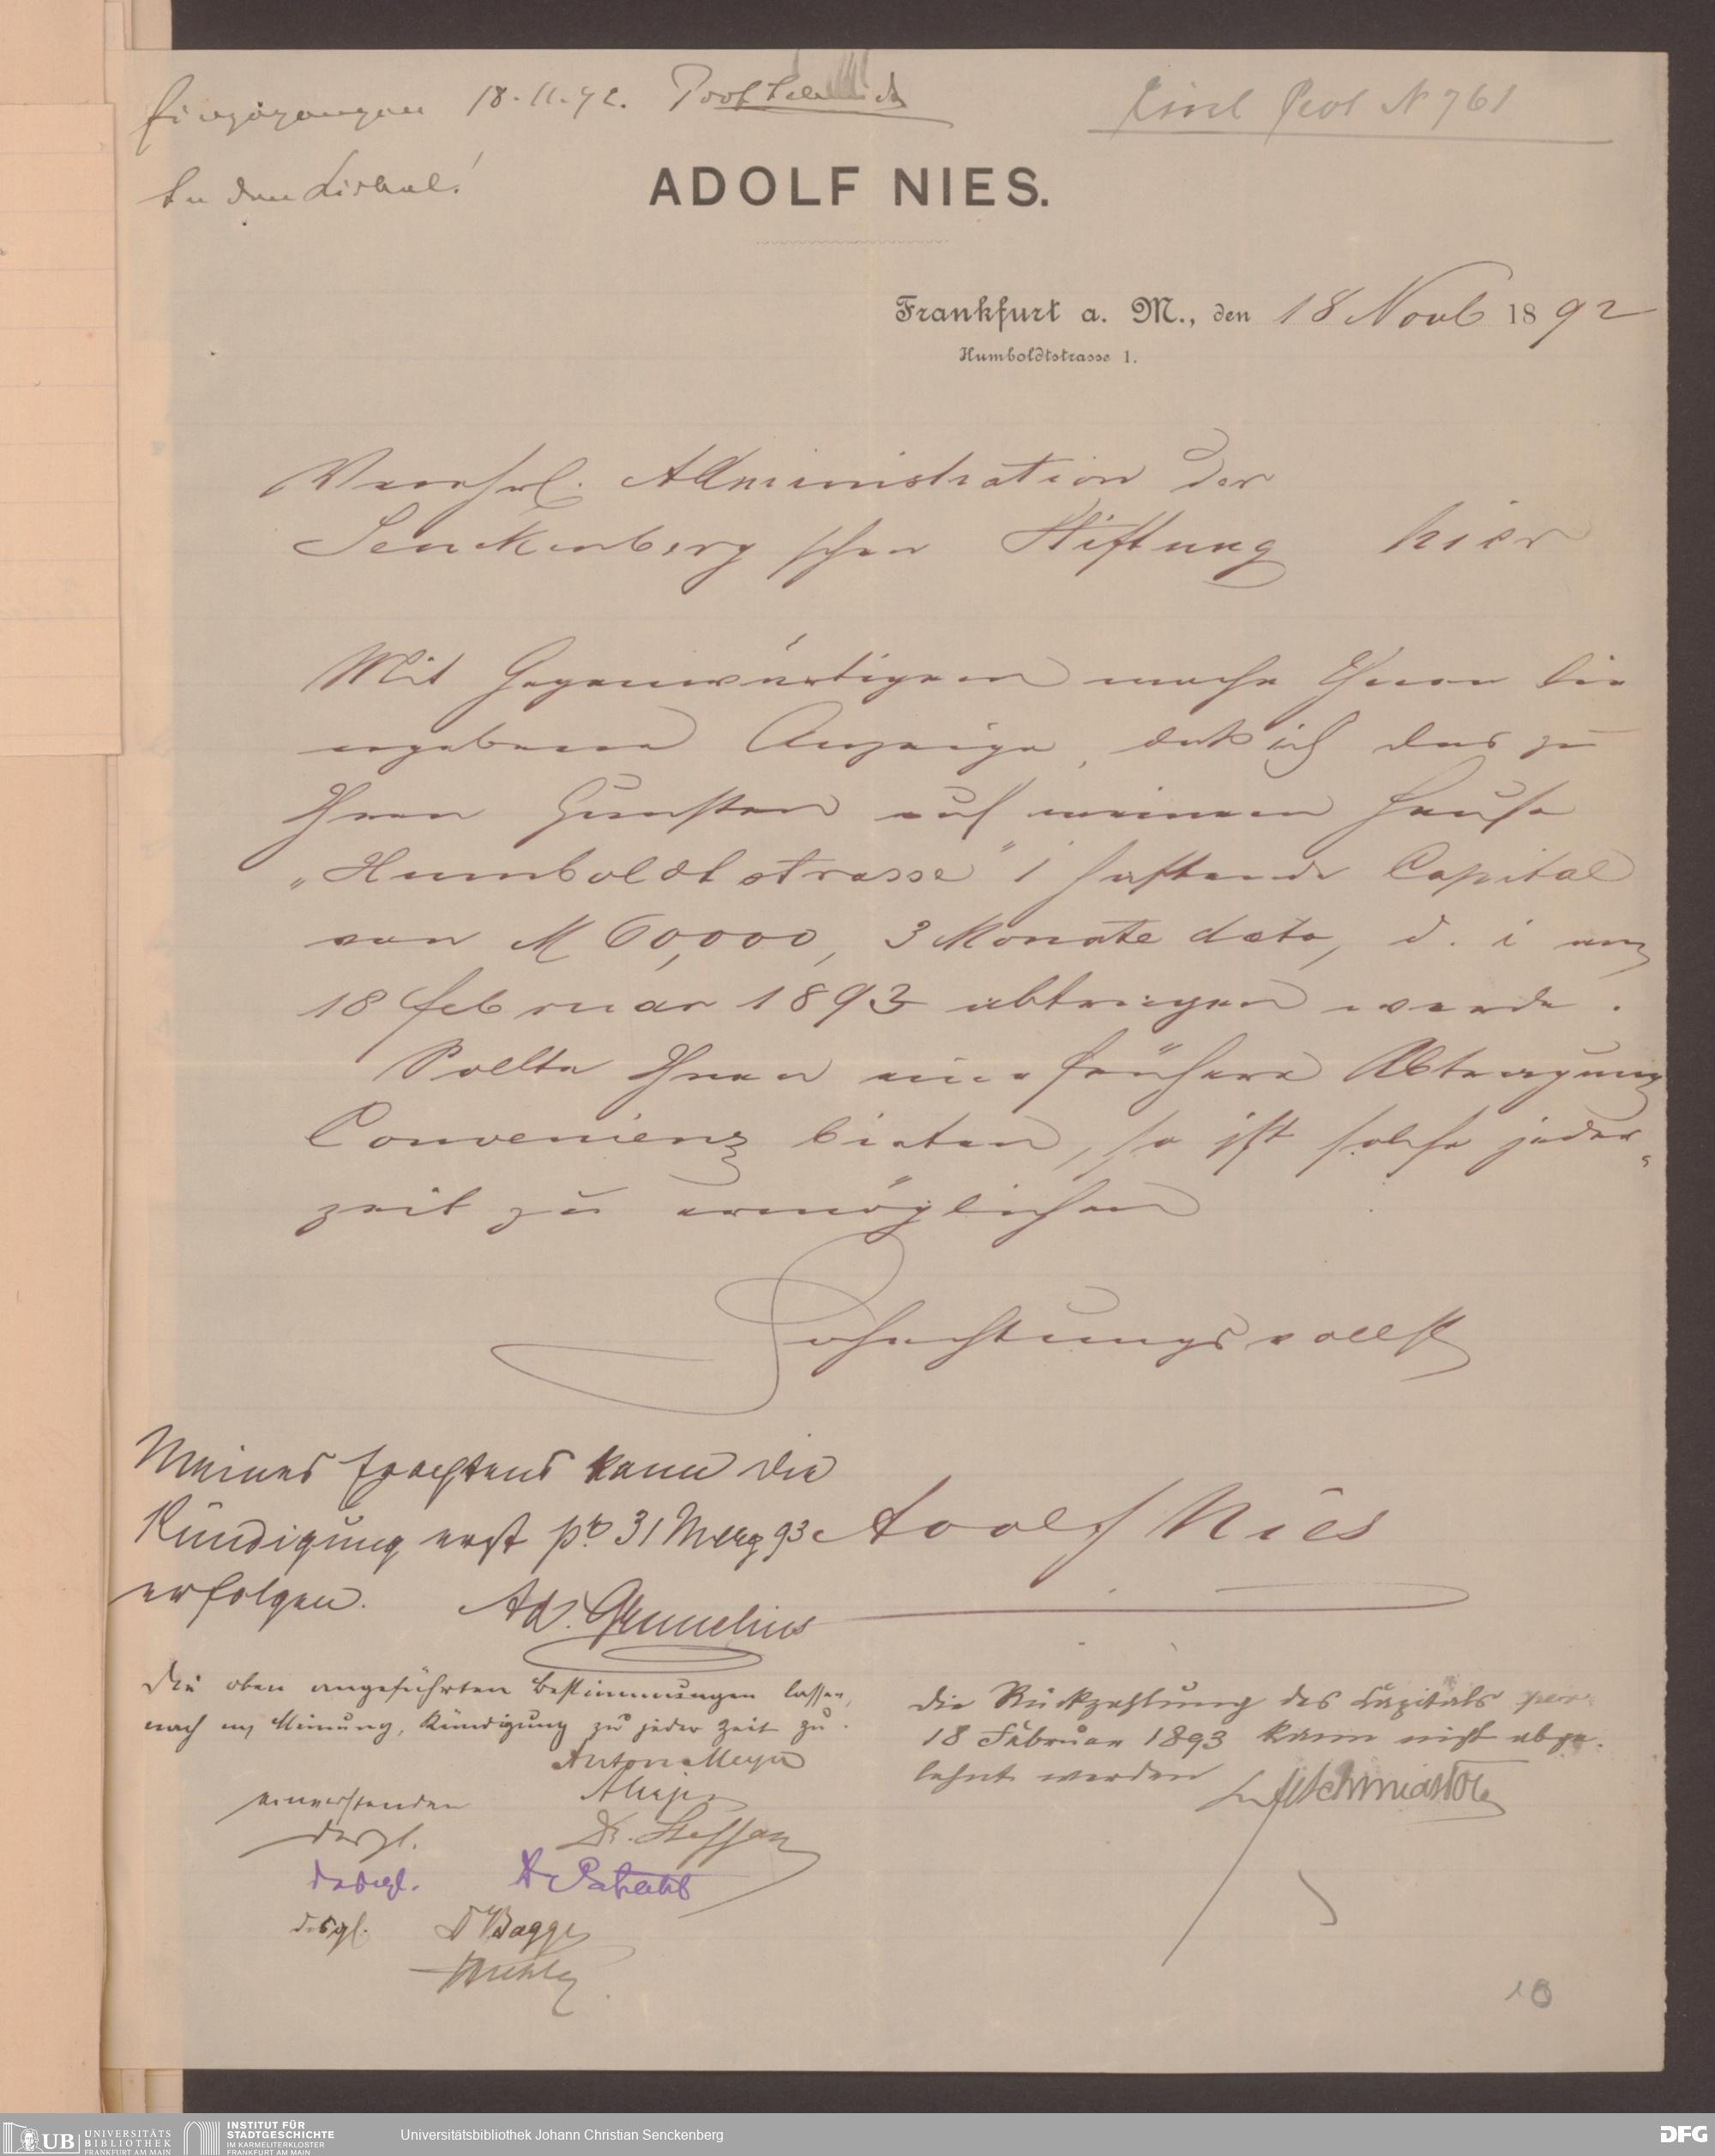 Eingegangen 18.11.92.
Circl Prot N 761
In den Cirkel!
ADOLF NIES.
Frankfurt a. M., den 18 Novb 1892
Humboldtstrasse 1.
Verehrl. Administration der
Senckenberg'schen Stiftung hier
Mit Gegenwärtigem mache Ihnen die
ergebene Anzeige, daß ich das zu
Ihren Gunsten auf meinem Hause
„Humboldtstrasse" 1 haftende Capital
von M 60,000, 3 Monate dato, d. i am
18 Februar 1893 abtragen werde.
Sollte Ihnen eine frühere Abtragung
Convenienz bieten, so ist solche jeder-
zeit zu ermöglichen
Hochachtungsvollst
Adolf Nies
Meines Erachtens kann die
Kündigung erst pr 31 Merz 93
erfolgen. Ad. Grunelius
Die oben angeführten Bestimmungen lassen,
nach m Meinung, Kündigung zu jeder Zeit zu.
Anton Meyer
einverstanden
desgl. Dr. Steffan
desgl.
desgl. Dr Bagge
Die Rückzahlung des Capitals per
18 Februar 1893 kann nicht abge-
lehnt werden
10
UB UNIVERSITÄTS
BIBLIOTHEK
FRANKFURT AM MAIN
INSTITUT FÜR
STADTGESCHICHTE
IM KARMELITERKLOSTER
FRANKFURT AM MAIN
Universitätsbibliothek Johann Christian Senckenberg
DFG